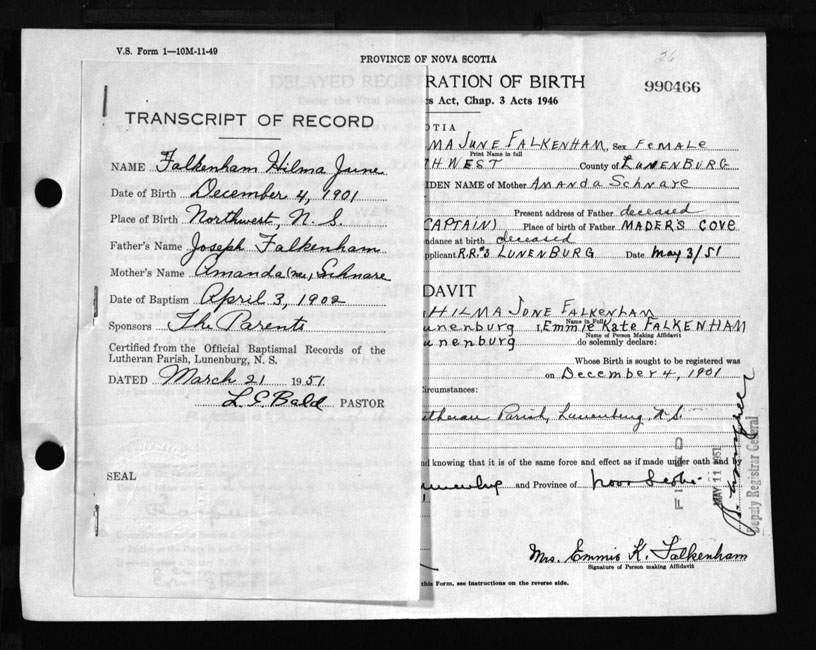 V.S. Form 1—10M-11-49
PROVINCE OF NOVA SCOTIA
26
DELAYED REGISTRATION OF BIRTH
990466
s Act, Chap. 3 Acts 1946
TRANSCRIPT OF RECORD
NAME Falkenham Hilma June
Date of Birth December 4, 1901
Place of Birth Northwest, N. S.
Father's Name Joseph Falkenham
Mother's Name Amanda (nee) Schnare
Date of Baptism April 3, 1902
Sponsors The Parents
Certified from the Official Baptismal Records of the
Lutheran Parish, Lunenburg, N. S.
DATED March 21 1951
L. E. Bald PASTOR
SEAL
OTIA
MA JUNE FALKENHAM, Sex FEMALE
Print Name in full
THWEST County of LUNENBURG
IDEN NAME of Mother AMANDA SCHNARE
Present address of Father deceased
CAPTAIN) Place of birth of Father MADER'S COVE
ndance at birth deceased
pplicant R.R.#3 LUNENBURG Date May 3/51
DAVIT
HILMA JUNE FALKENHAM
Name in Full
unenburg I, Emmie Kate FALKENHAM
Name of Person Making Affidavit
unenburg do solemnly declare:
Whose Birth is sought to be registered was
on December 4, 1901
ircumstances:
utheran Parish, Lunenburg, N.S.
nd knowing that it is of the same force and effect as if made under oath and
unenburg and Province of Nova Scotia
FILED
MAY 11 1951
Deputy Registrar General
Mrs. Emmie K. Falkenham
Signature of Person making Affidavit
this Form, see instructions on the reverse side.